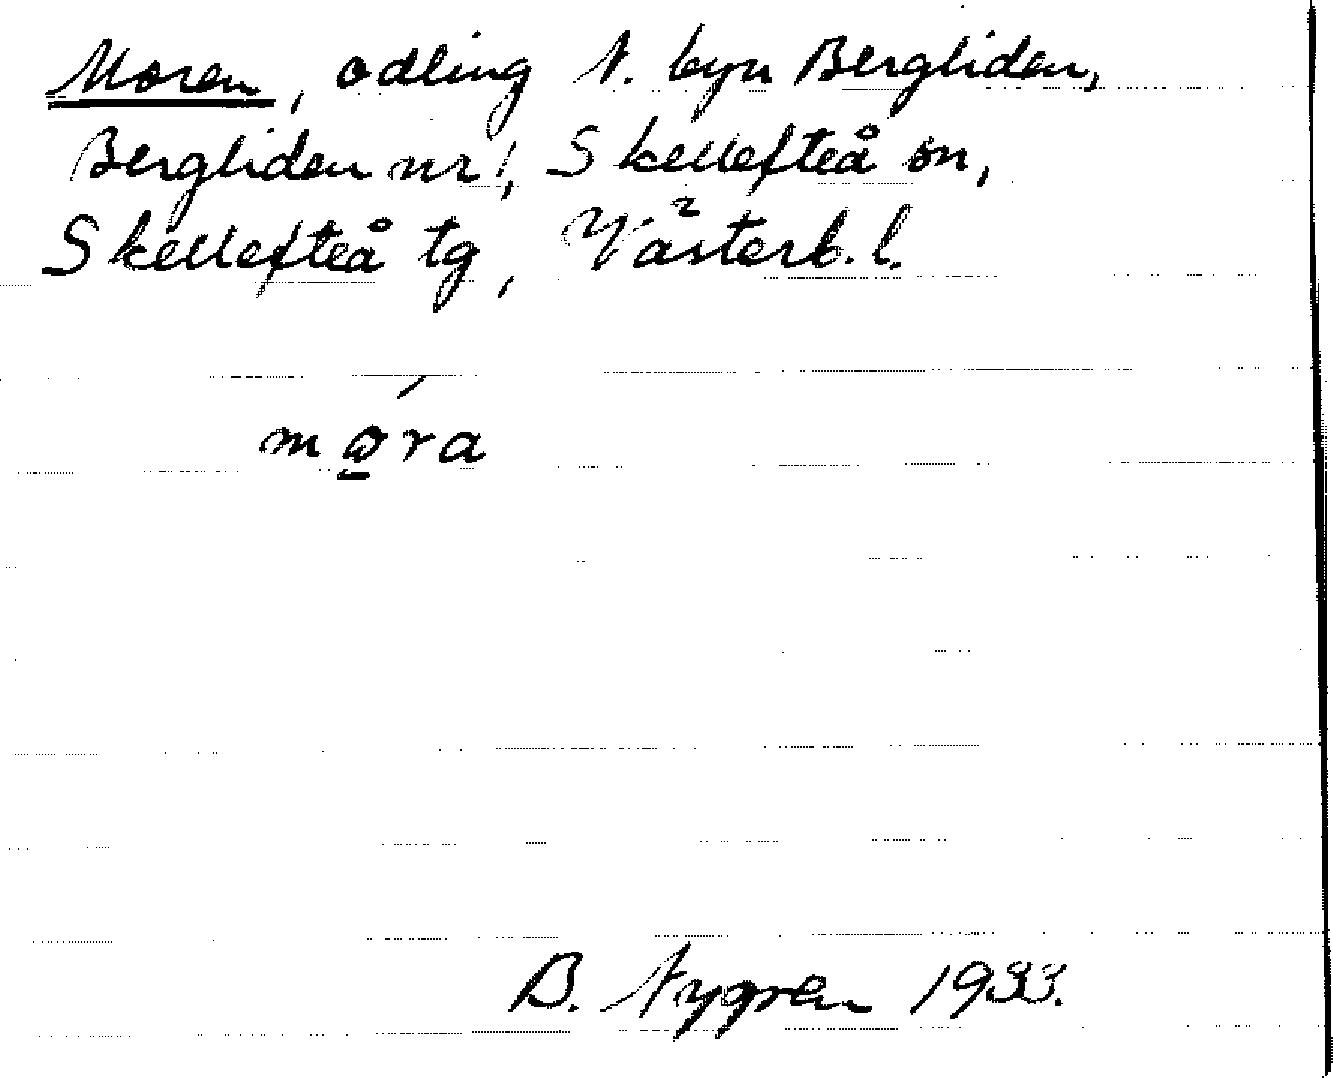 Moren, odling N. byn Bergliden,
Bergliden nr 1, Skellefteå sn,
Skellefteå tg, Västerb. l.
møra
B. Nygren 1933.